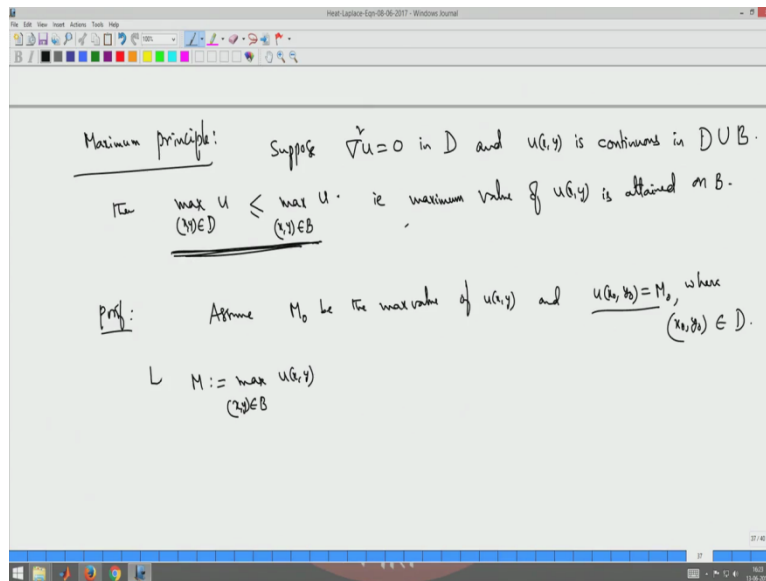 Heat-Laplace-Eqn-08-06-2017 - Windows Journal
File Edit View Insert Actions Tools Help
100%
B I
Maximum principle: Suppose ∇²u=0 in D and u(x,y) is continuous in D∪B.
Then max u ≤ max u. ie maximum value of u(x,y) is attained on B.
(x,y)∈D (x,y)∈B
Proof: Assume M₀ be the max value of u(x,y) and u(x₀,y₀)=M₀, where
(x₀,y₀) ∈ D.
L M := max u(x,y)
(x,y)∈B
37/40
37
16:23